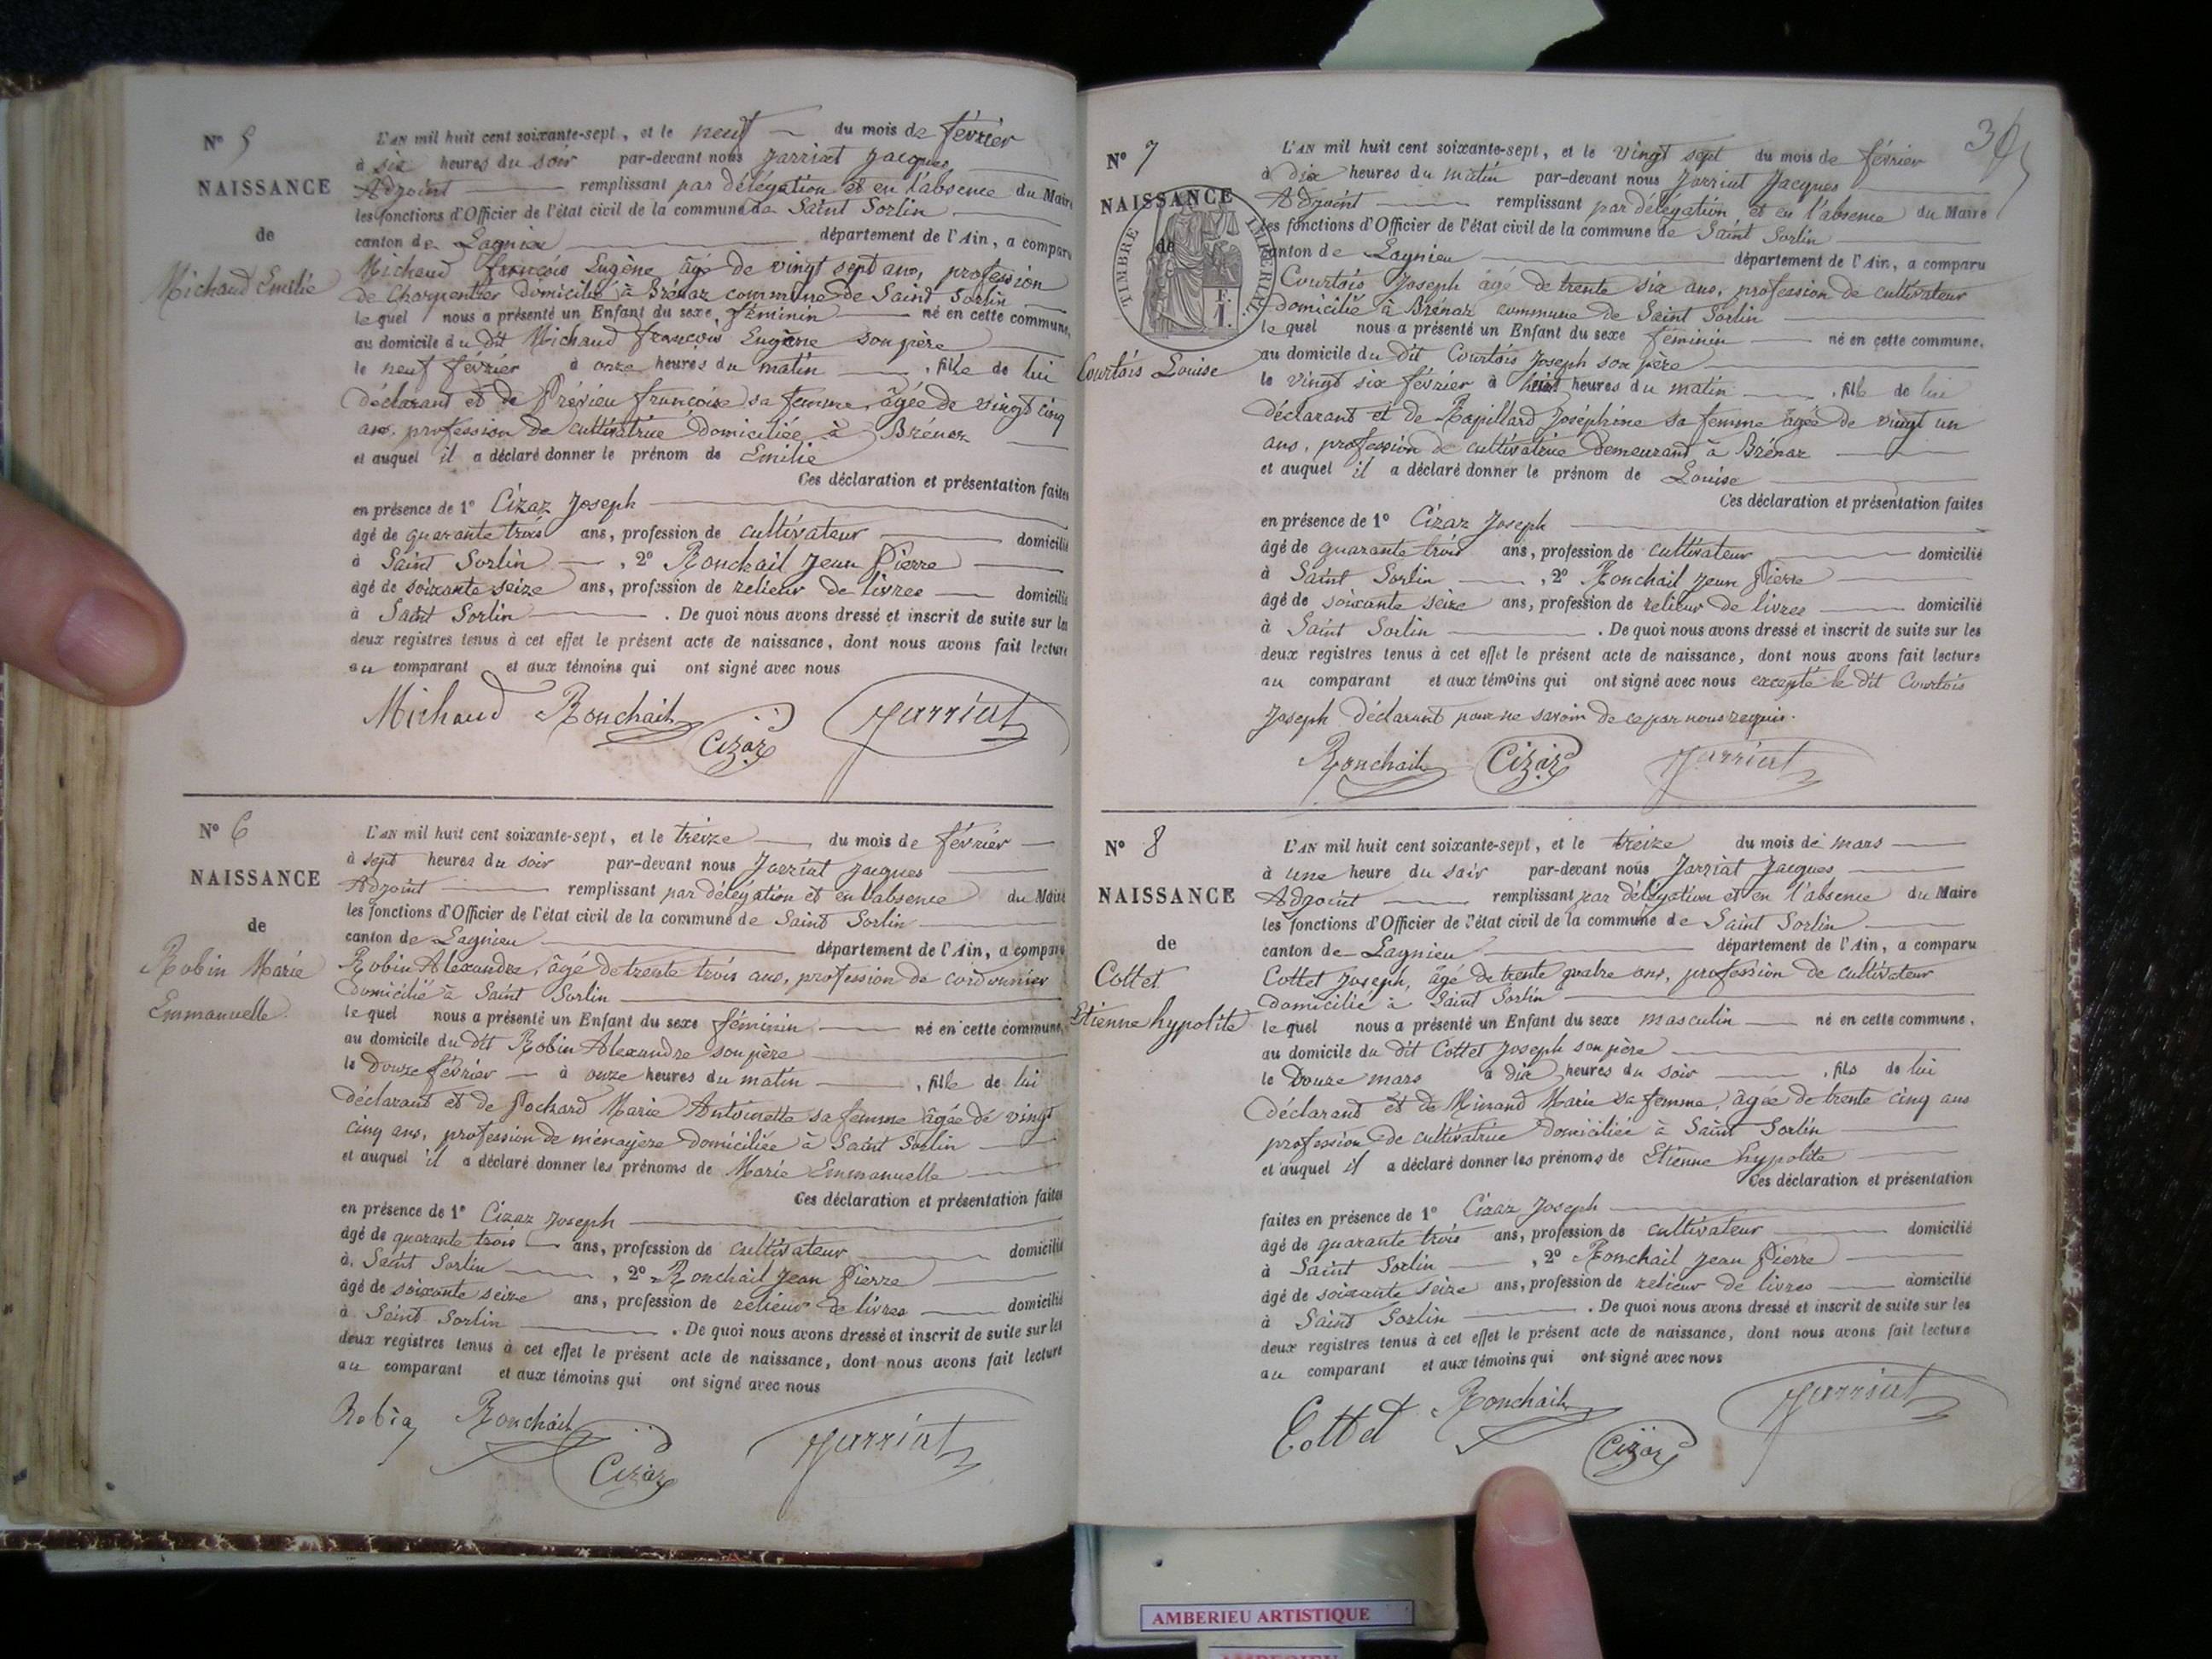 N° 5
NAISSANCE
de
Michaud Emilie
L'AN mil huit cent soixante-sept, et le neuf du mois de février
à six heures du soir par-devant nous Jarriat Jacques
Adjoint remplissant par délégation et en l'absence du Maire
les fonctions d'Officier de l'état civil de la commune de Saint Sorlin
canton de Lagnieu département de l'Ain, a comparu
Michaud françois Eugène âgé de vingt sept ans, profession
de Charpentier domicilié à Brénaz commune de Saint Sorlin
lequel nous a présenté un Enfant du sexe féminin né en cette commune,
au domicile du dit Michaud françois Eugène son père
le neuf février à onze heures du matin , fille de lui
déclarant et de Prévieu françoise sa femme, âgée de vingt cinq
ans, profession de cultivatrice domiciliée à Brénaz
et auquel il a déclaré donner le prénom de Emilie
Ces déclaration et présentation faites
en présence de 1° Cizaz Joseph
âgé de quarante trois ans, profession de cultivateur domicilié
à Saint Sorlin , 2° Ronchail Jean Pierre
âgé de soixante seize ans, profession de relieur de livres domicilié
à Saint Sorlin . De quoi nous avons dressé et inscrit de suite sur les
deux registres tenus à cet effet le présent acte de naissance, dont nous avons fait lecture
au comparant et aux témoins qui ont signé avec nous
Michaud Ronchail Cizaz Jarriat
N° 6
NAISSANCE
de
Robin Marie
Emmanuelle.
L'AN mil huit cent soixante-sept, et le treize du mois de février
à sept heures du soir par-devant nous Jarriat Jacques
Adjoint remplissant par délégation et en l'absence du Maire
les fonctions d'Officier de l'état civil de la commune de Saint Sorlin
canton de Lagnieu département de l'Ain, a comparu
Robin Alexandre, âgé de trente trois ans, profession de cordonnier
domicilié à Saint Sorlin
lequel nous a présenté un Enfant du sexe féminin né en cette commune,
au domicile du dit Robin Alexandre son père
le douze février à onze heures du matin , fille de lui
déclarant et de Pochard Marie Antoinette sa femme âgée de vingt
cinq ans, profession de ménagère domiciliée à Saint Sorlin
et auquel il a déclaré donner les prénoms de Marie Emmanuelle
Ces déclaration et présentation faites
en présence de 1° Cizaz Joseph
âgé de quarante trois ans, profession de cultivateur domicilié
à Saint Sorlin , 2° Ronchail Jean Pierre
âgé de soixante seize ans, profession de relieur de livres domicilié
à Saint Sorlin . De quoi nous avons dressé et inscrit de suite sur les
deux registres tenus à cet effet le présent acte de naissance, dont nous avons fait lecture
au comparant et aux témoins qui ont signé avec nous
Robin Ronchail Cizaz Jarriat
N° 7
NAISSANCE
de
TIMBRE IMPERIAL
F.
1.
Courtois Louise
L'AN mil huit cent soixante-sept, et le vingt sept du mois de février
à dix heures du matin par-devant nous Jarriat Jacques
Adjoint remplissant par délégation, et en l'absence du Maire
les fonctions d'Officier de l'état civil de la commune de Saint Sorlin
canton de Lagnieu département de l'Ain, a comparu
Courtois Joseph âgé de trente six ans, profession de cultivateur
domicilié à Brénaz commune de Saint Sorlin
lequel nous a présenté un Enfant du sexe féminin né en cette commune,
au domicile du dit Courtois Joseph son père
le vingt six février à heures du matin , fille de lui
déclarant et de Rapillard Joséphine sa femme âgée de vingt un
ans, profession de cultivatrice demeurant à Brénaz
et auquel il a déclaré donner le prénom de Louise
Ces déclaration et présentation faites
en présence de 1° Cizaz Joseph
âgé de quarante trois ans, profession de cultivateur domicilié
à Saint Sorlin , 2° Ronchail Jean Pierre
âgé de soixante seize ans, profession de relieur de livres domicilié
à Saint Sorlin . De quoi nous avons dressé et inscrit de suite sur les
deux registres tenus à cet effet le présent acte de naissance, dont nous avons fait lecture
au comparant et aux témoins qui ont signé avec nous excepté le dit Courtois
Joseph déclarant pour ne savoir de ce par nous requis.
Ronchail Cizaz Jarriat
N° 8
NAISSANCE
de
Cottet
Etienne hypolite
L'AN mil huit cent soixante-sept, et le treize du mois de mars
à une heure du soir par-devant nous Jarriat Jacques
Adjoint remplissant par délégation et en l'absence du Maire
les fonctions d'Officier de l'état civil de la commune de Saint Sorlin
canton de Lagnieu département de l'Ain, a comparu
Cottet Joseph, âgé de trente quatre ans, profession de cultivateur
domicilié à Saint Sorlin
lequel nous a présenté un Enfant du sexe masculin né en cette commune,
au domicile du dit Cottet Joseph son père
le douze mars à dix heures du soir , fils de lui
déclarant et de Minand Marie sa femme, âgée de trente cinq ans
profession de cultivatrice domiciliée à Saint Sorlin
et auquel il a déclaré donner les prénoms de Etienne hypolite
Ces déclaration et présentation
faites en présence de 1° Cizaz Joseph
âgé de quarante trois ans, profession de cultivateur domicilié
à Saint Sorlin , 2° Ronchail Jean Pierre
âgé de soixante seize ans, profession de relieur de livres domicilié
à Saint Sorlin . De quoi nous avons dressé et inscrit de suite sur les
deux registres tenus à cet effet le présent acte de naissance, dont nous avons fait lecture
au comparant et aux témoins qui ont signé avec nous
Cottet Ronchail Cizaz Jarriat
AMBERIEU ARTISTIQUE
AMBERIEU